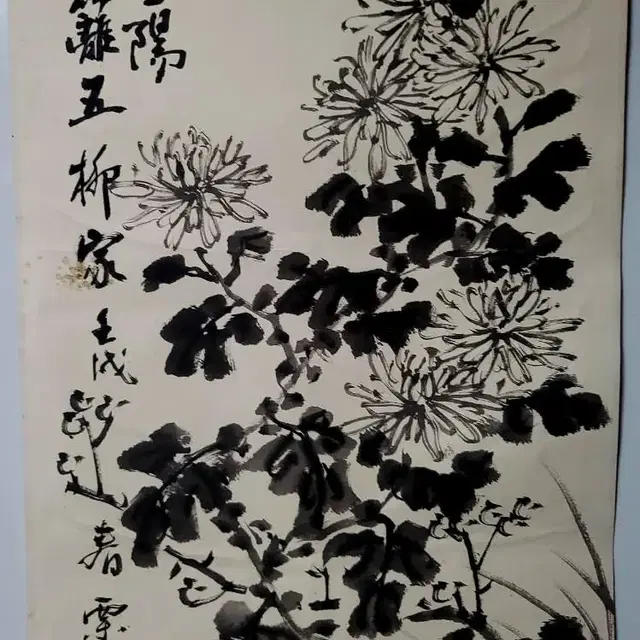 陽
籬五柳家壬戌春